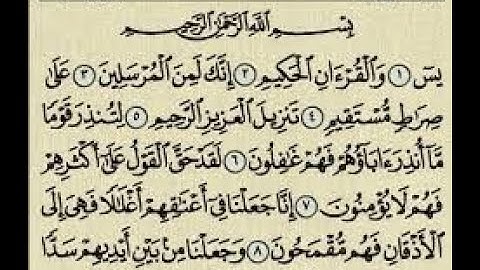 بِسْمِ ٱللَّهِ ٱلرَّحْمَٰنِ ٱلرَّحِيمِ
يسٓ ١ وَٱلْقُرْءَانِ ٱلْحَكِيمِ ٢ إِنَّكَ لَمِنَ ٱلْمُرْسَلِينَ ٣ عَلَىٰ
صِرَٰطٍ مُّسْتَقِيمٍ ٤ تَنزِيلَ ٱلْعَزِيزِ ٱلرَّحِيمِ ٥ لِتُنذِرَ قَوْمًا
مَّآ أُنذِرَ ءَابَآؤُهُمْ فَهُمْ غَٰفِلُونَ ٦ لَقَدْ حَقَّ ٱلْقَوْلُ عَلَىٰٓ أَكْثَرِهِمْ
فَهُمْ لَا يُؤْمِنُونَ ٧ إِنَّا جَعَلْنَا فِىٓ أَعْنَٰقِهِمْ أَغْلَٰلًا فَهِىَ إِلَى
ٱلْأَذْقَانِ فَهُم مُّقْمَحُونَ ٨ وَجَعَلْنَا مِنۢ بَيْنِ أَيْدِيهِمْ سَدًّا